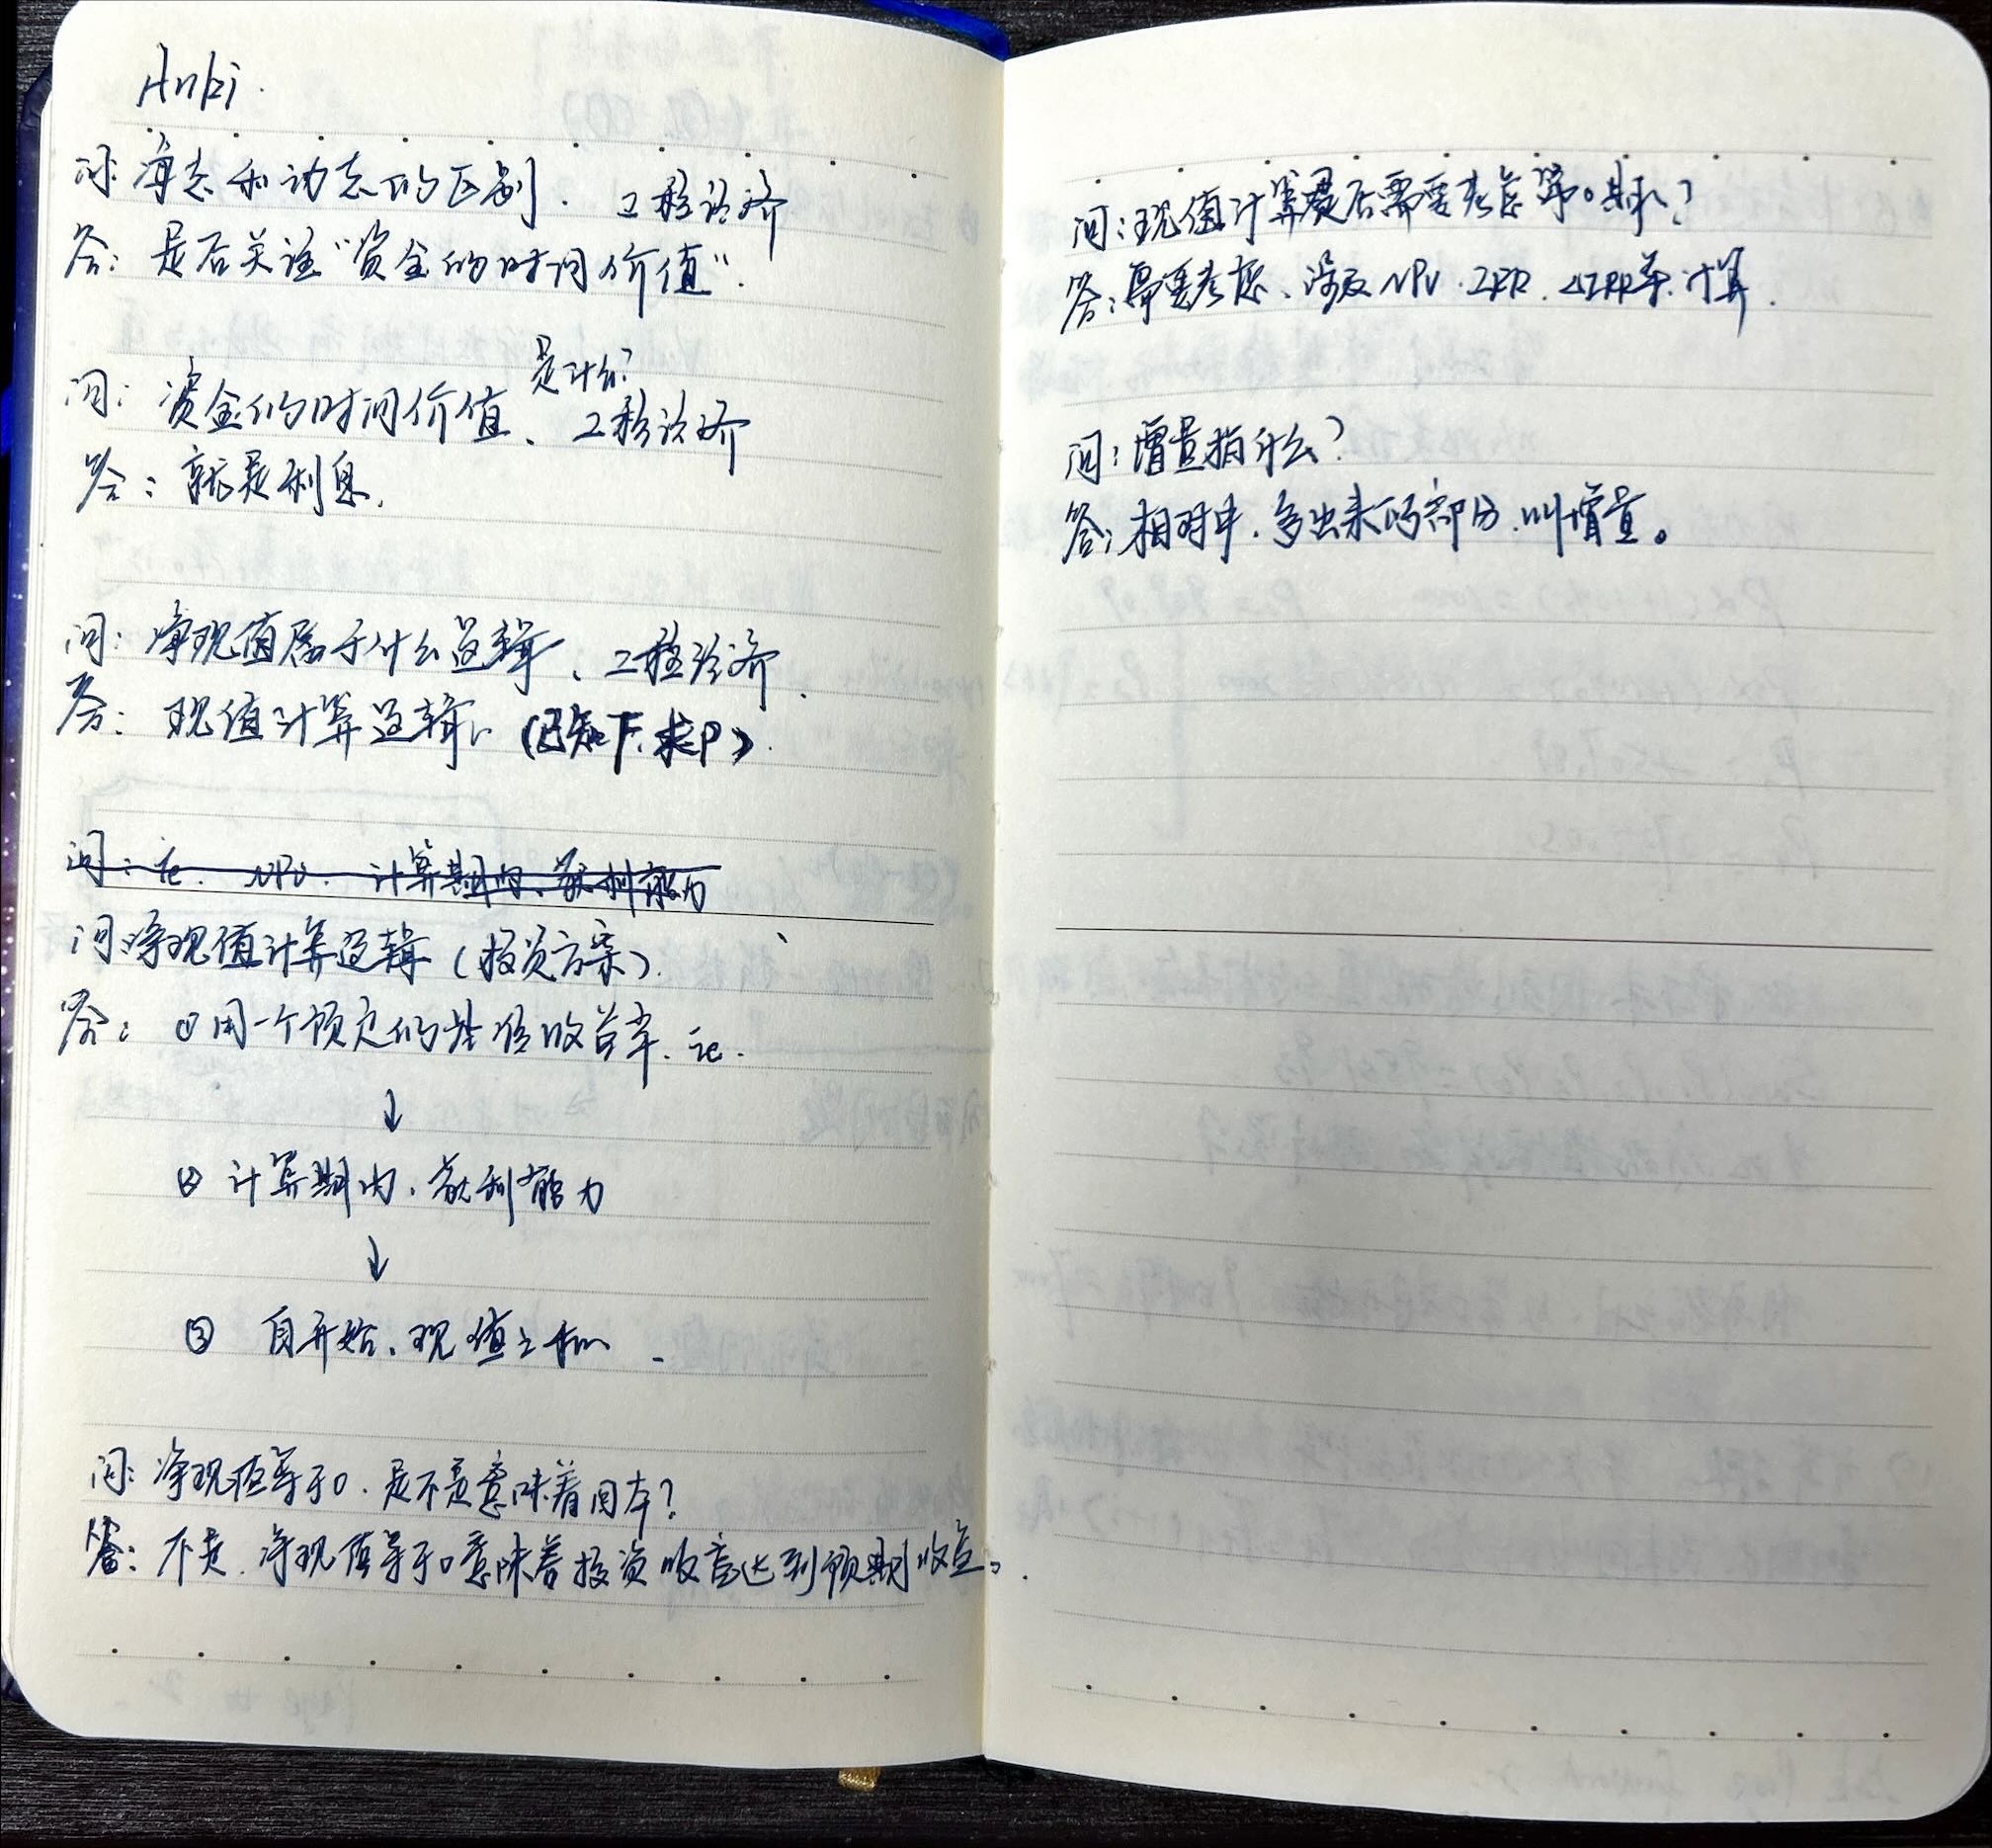 Anki.
问:静态和动态的区别. 工程经济
答:是否关注“资金的时间价值”.
问:资金的时间价值、是什么? 工程经济
答:就是利息.
问:净现值属于什么逻辑、工程经济.
答:现值计算逻辑、(已知F.求P).
问:ic. NPV. 计算期内、获利能力
问:净现值计算逻辑(投资方案).
答:①用一个预定的基准收益率. ic.
↓
② 计算期内、获利能力
↓
③ 自开始、现值之和.
问:净现值等于0.是不是意味着回本?
答:不是.净现值等于0意味着投资收益达到预期收益。
问:现值计算是否需要考虑第0期?
答:需要考虑、涉及NPV.IRR.△IRR等.计算.
问:增量指什么?
答:相对中.多出来的部分.叫增量。